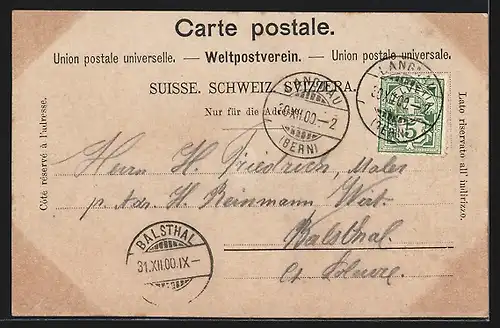 Carte postale.
Union postale universelle. — Weltpostverein. — Unione postale universale.
SUISSE. SCHWEIZ. SVIZZERA.
Nur für die Adresse.
Côté réservé à l'adresse.
Lato riservato all' indirizzo.
LANGNAU
30.XII.00.–2
(BERN)
LANGNAU
(BERN)
5
Herrn H. Friedrich, Maler
p. Adr. H. Reinmann Wwt.
Balsthal.
Ct. Soleure.
BALSTHAL
31.XII.00.IX–